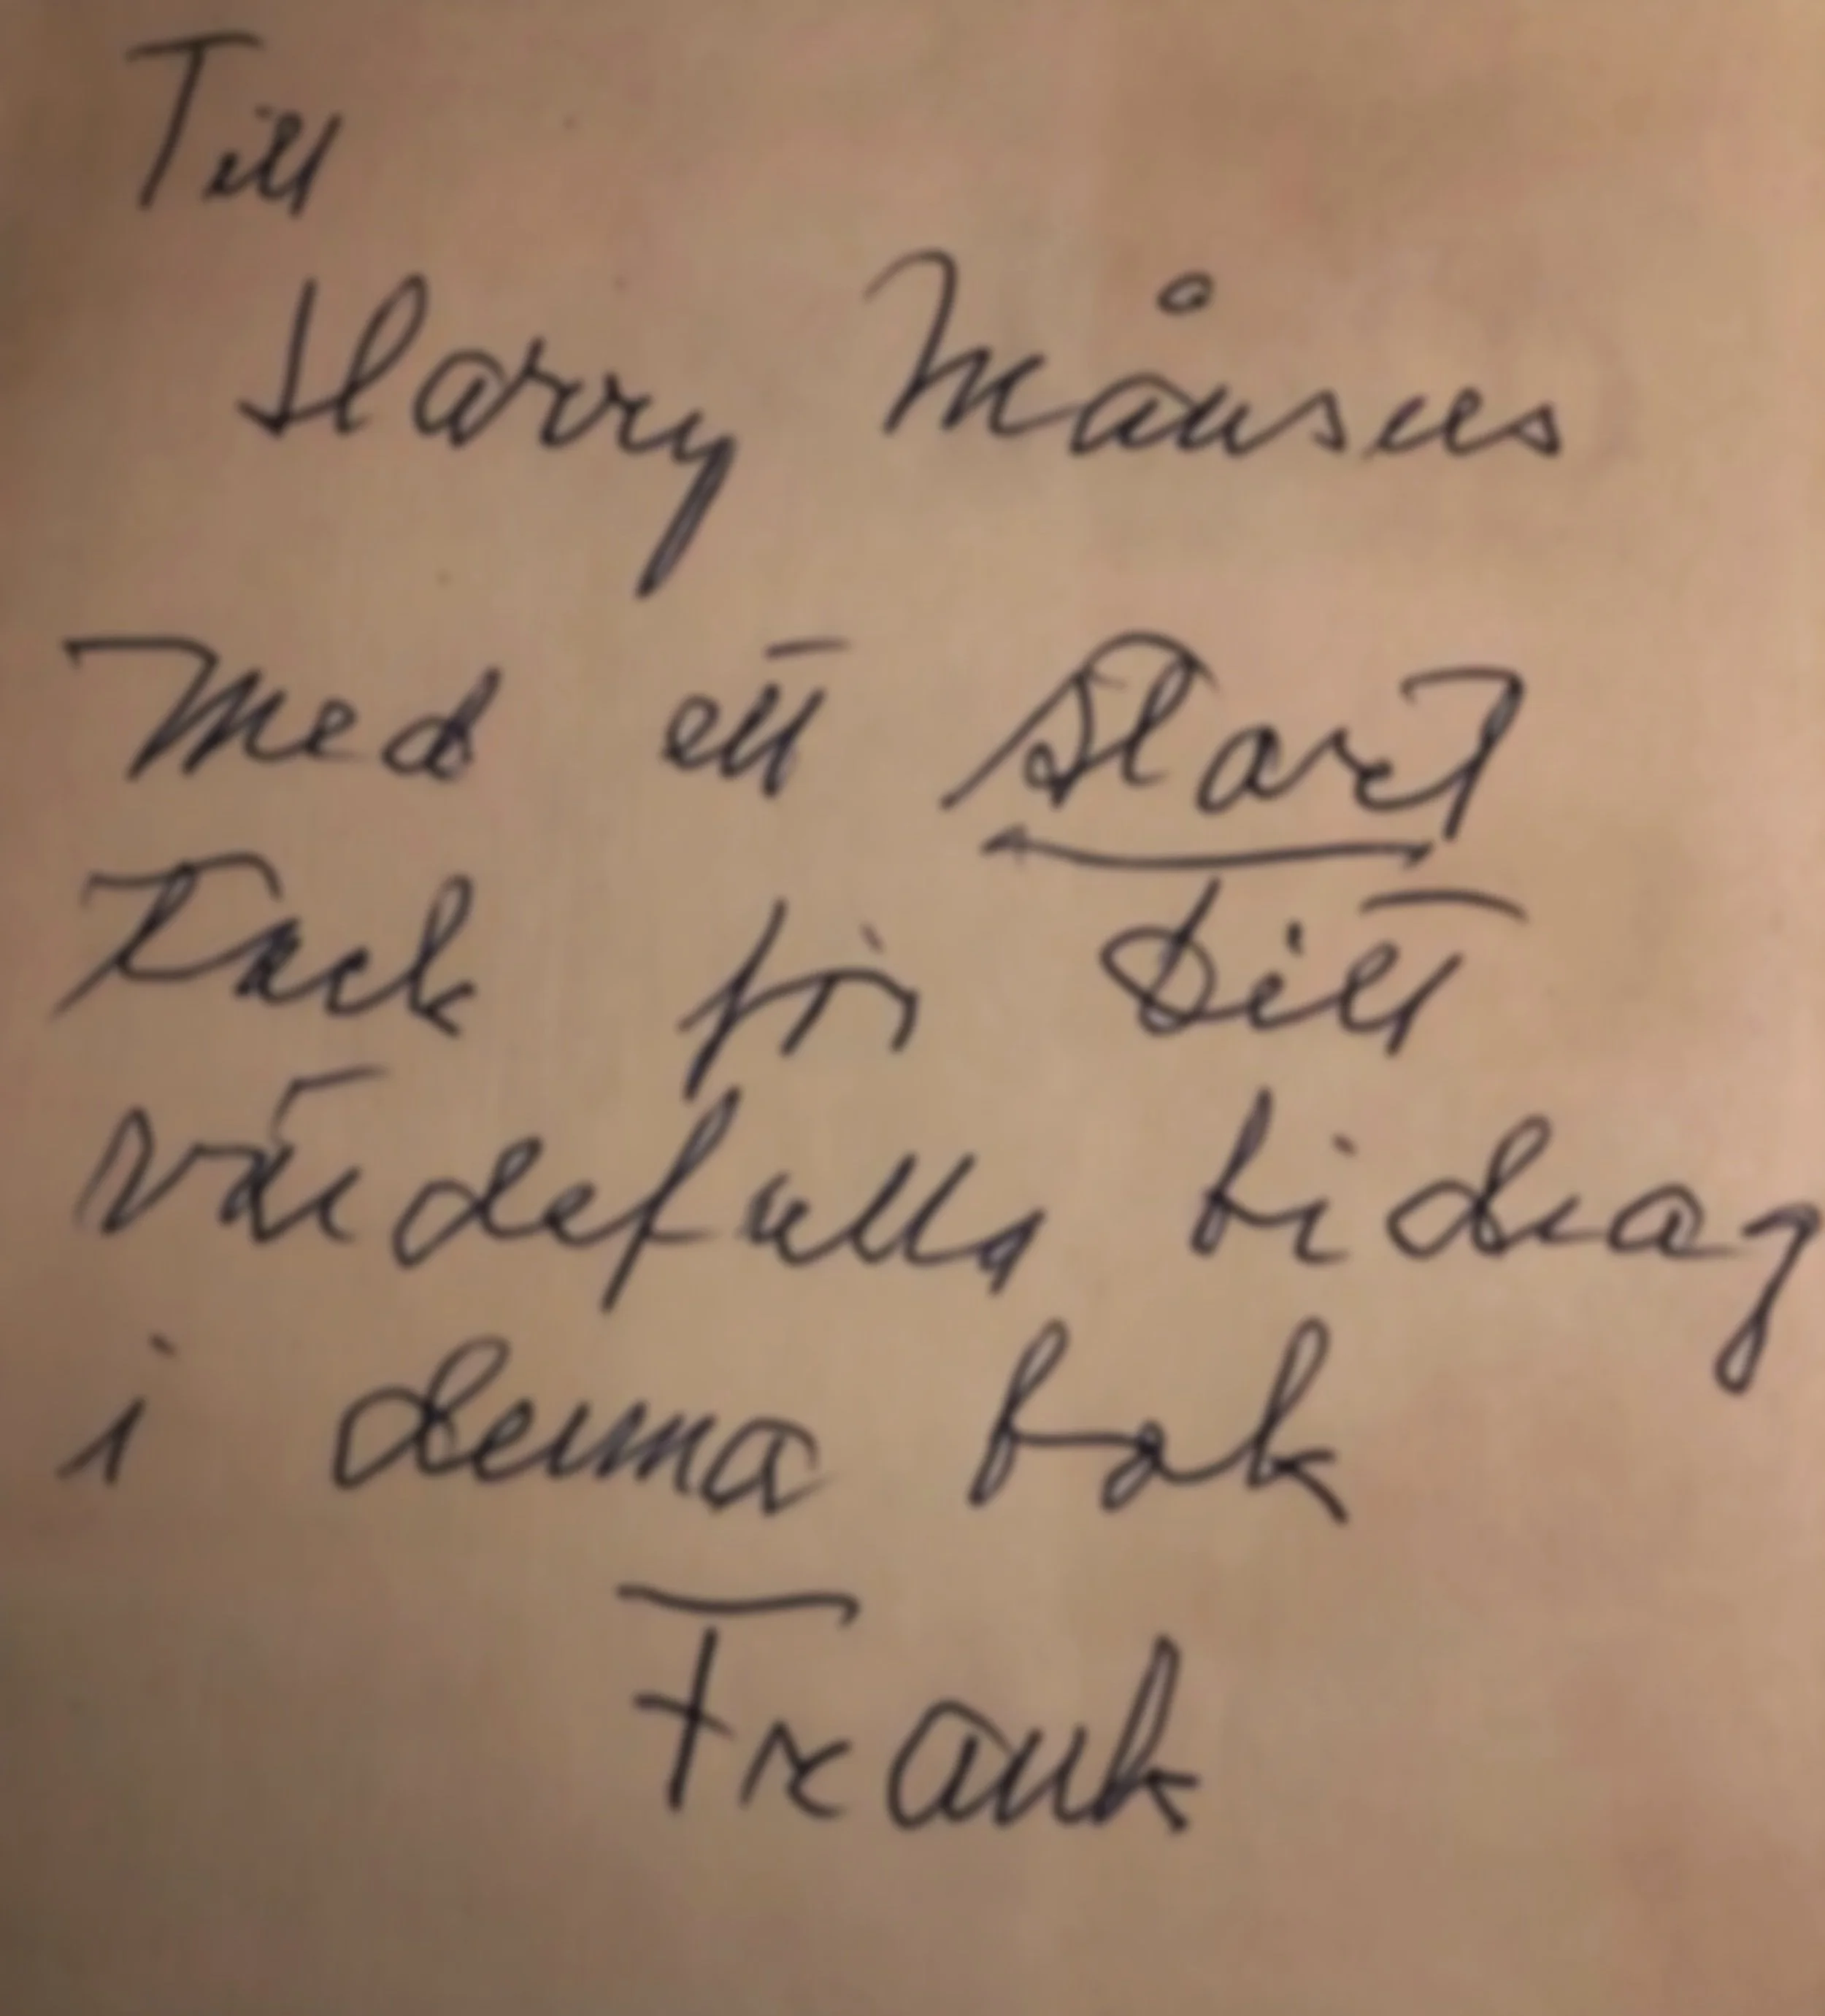 Till
Harry Månsus
Med ett Stort
Tack för Ditt
värdefulla bidrag
i denna bok
Frank